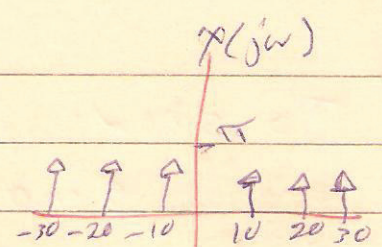 X(jω)
π
-30 -20 -10 10 20 30